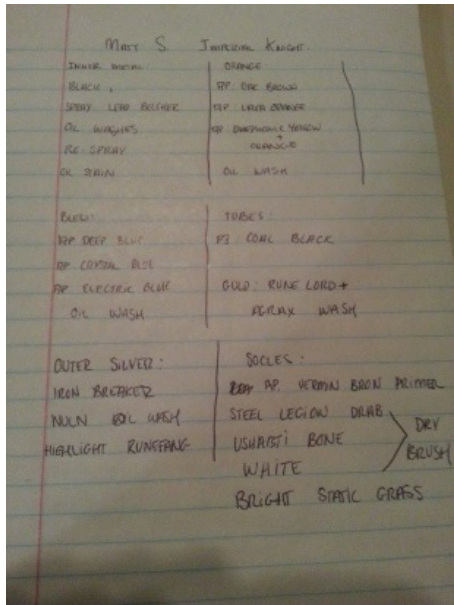 MATT S. IMPERIAL KNIGHT.
INNER METAL
BLACK.
SPRAY LEAD BELCHER
OIL WASHES
RE. SPRAY
OIL STAIN
ORANGE
AP. OAK BROWN
AP. LAVA ORANGE
AP DAEMONIC YELLOW
+
ORANGE
OIL WASH
BLEU:
AP DEEP BLUE
AP CRYSTAL BLUE
AP ELECTRIC BLUE
OIL WASH
TUBES:
P3 COAL BLACK
GOLD: RUNE LORD +
AGRAX WASH
OUTER SILVER:
IRON BREAKER
NULN OIL WASH
HIGHLIGHT RUNEFANG
SOCLES:
AP. VERMIN BRON PRIMER
STEEL LEGION DRAB
USHABTI BONE
WHITE
DRY
BRUSH
BRIGHT STATIC GRASS